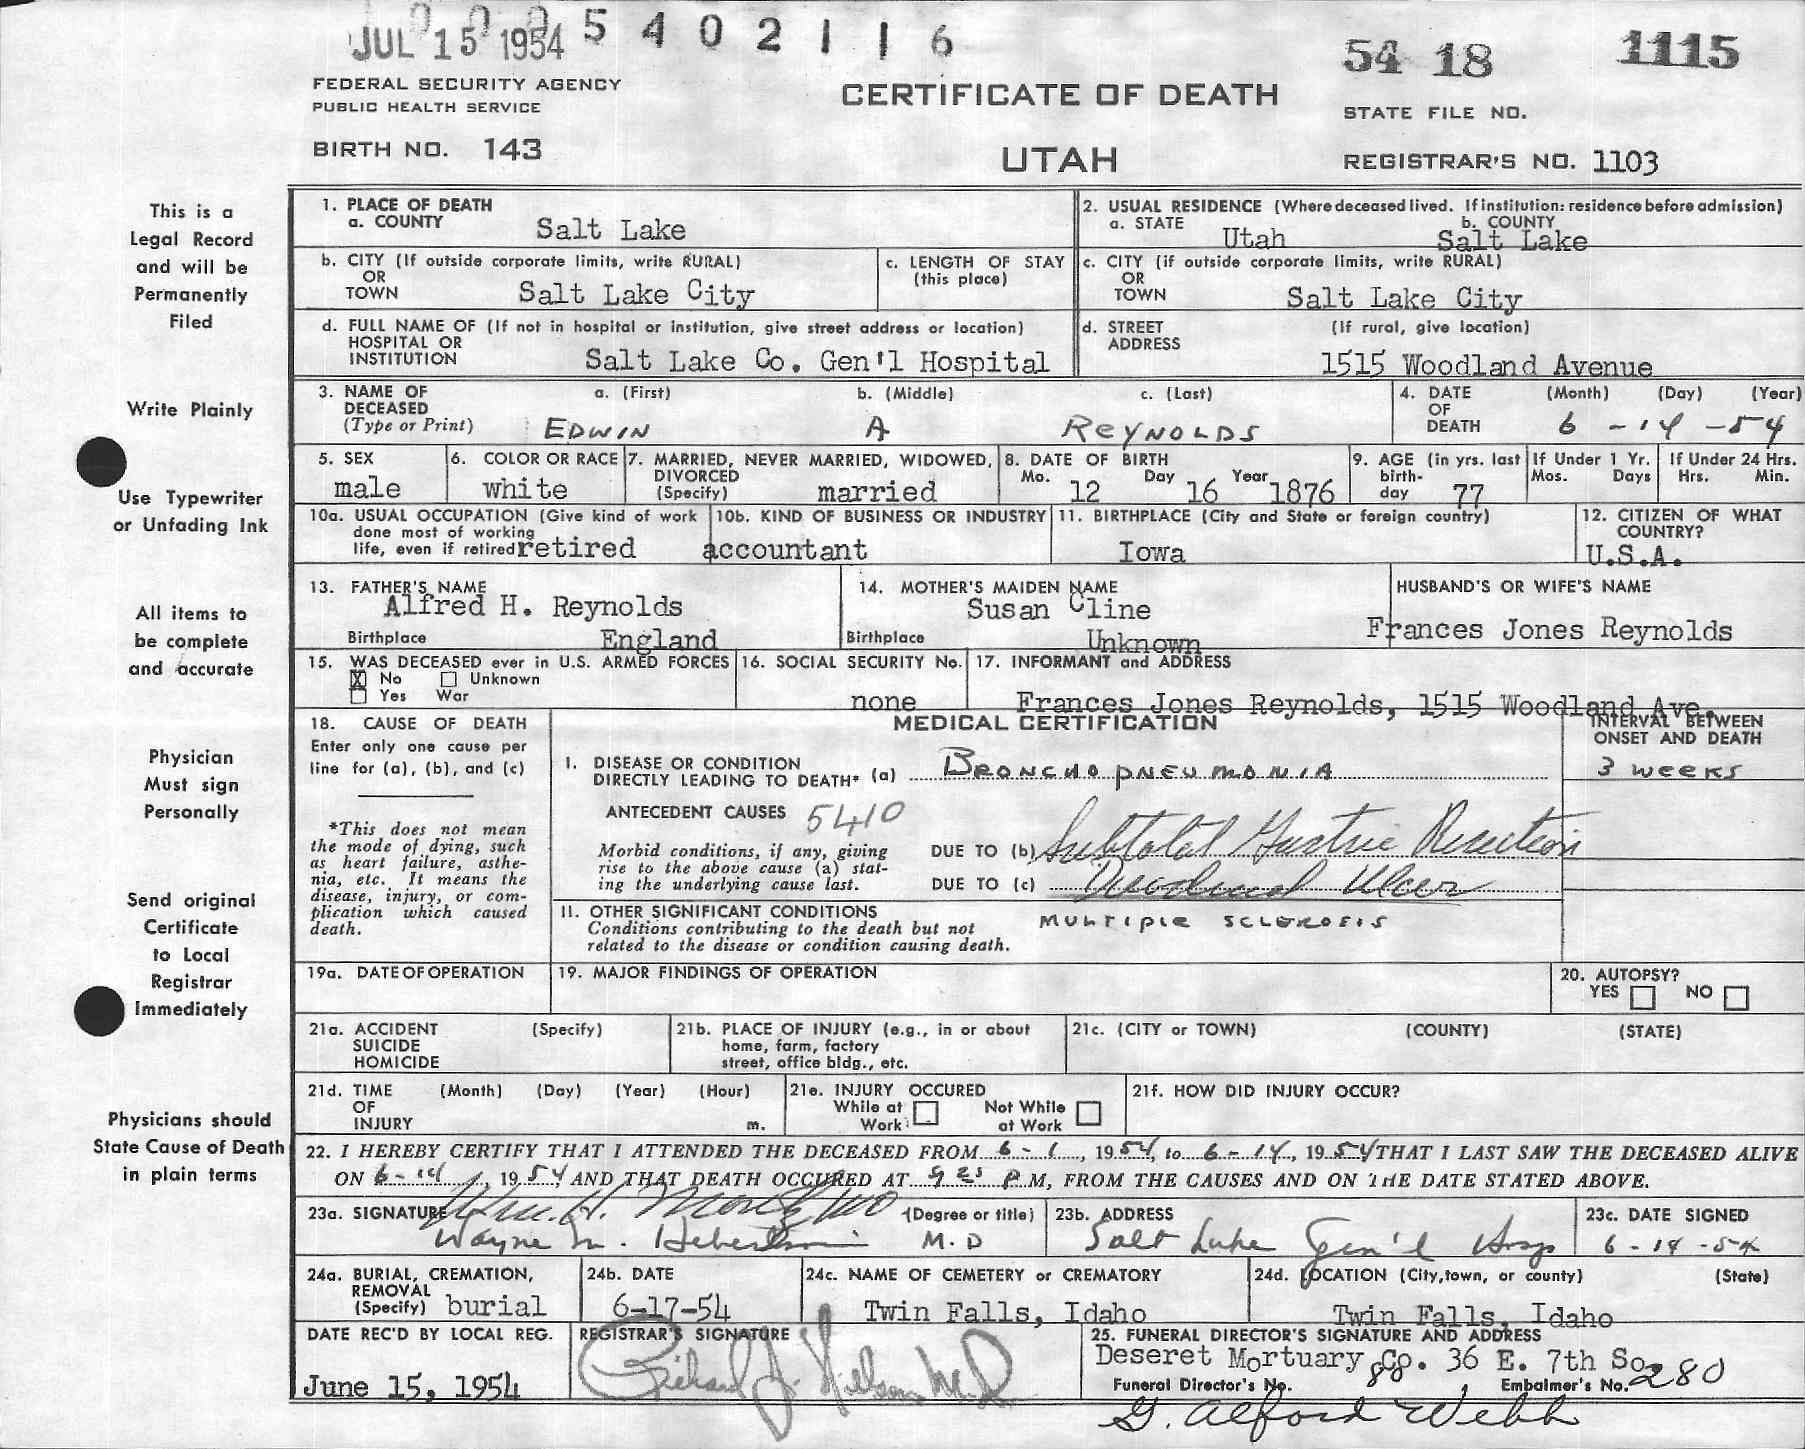 JUL 15 1954 5 4 0 2 1 1 6
54 18 1115
FEDERAL SECURITY AGENCY
PUBLIC HEALTH SERVICE
CERTIFICATE OF DEATH
STATE FILE NO.
BIRTH NO. 143
UTAH
REGISTRAR'S NO. 1103
This is a
Legal Record
and will be
Permanently
Filed
Write Plainly
Use Typewriter
or Unfading Ink
All items to
be complete
and accurate
Physician
Must sign
Personally
Send original
Certificate
to Local
Registrar
Immediately
Physicians should
State Cause of Death
in plain terms
1. PLACE OF DEATH
a. COUNTY Salt Lake
2. USUAL RESIDENCE (Where deceased lived. If institution: residence before admission)
a. STATE Utah b. COUNTY Salt Lake
b. CITY (If outside corporate limits, write RURAL)
OR
TOWN Salt Lake City
c. LENGTH OF STAY
(this place)
c. CITY (if outside corporate limits, write RURAL)
OR
TOWN Salt Lake City
d. FULL NAME OF (If not in hospital or institution, give street address or location)
HOSPITAL OR
INSTITUTION Salt Lake Co. Gen'l Hospital
d. STREET (If rural, give location)
ADDRESS
1515 Woodland Avenue
3. NAME OF a. (First) b. (Middle) c. (Last)
DECEASED
(Type or Print) EDWIN A REYNOLDS
4. DATE (Month) (Day) (Year)
OF
DEATH 6 - 14 - 54
5. SEX
male
6. COLOR OR RACE
white
7. MARRIED, NEVER MARRIED, WIDOWED,
DIVORCED
(Specify) married
8. DATE OF BIRTH
Mo. 12 Day 16 Year 1876
9. AGE (in yrs. last
birth-
day 77
If Under 1 Yr.
Mos. Days
If Under 24 Hrs.
Hrs. Min.
10a. USUAL OCCUPATION (Give kind of work
done most of working
life, even if retired retired
10b. KIND OF BUSINESS OR INDUSTRY
accountant
11. BIRTHPLACE (City and State or foreign country)
Iowa
12. CITIZEN OF WHAT
COUNTRY?
U.S.A.
13. FATHER'S NAME
Alfred H. Reynolds
Birthplace England
14. MOTHER'S MAIDEN NAME
Susan Cline
Birthplace Unknown
HUSBAND'S OR WIFE'S NAME
Frances Jones Reynolds
15. WAS DECEASED ever in U.S. ARMED FORCES
X No Unknown
Yes War
16. SOCIAL SECURITY No.
none
17. INFORMANT and ADDRESS
Frances Jones Reynolds, 1515 Woodland Ave.
18. CAUSE OF DEATH
Enter only one cause per
line for (a), (b), and (c)
*This does not mean
the mode of dying, such
as heart failure, asthe-
nia, etc. It means the
disease, injury, or com-
plication which caused
death.
MEDICAL CERTIFICATION
INTERVAL BETWEEN
ONSET AND DEATH
I. DISEASE OR CONDITION
DIRECTLY LEADING TO DEATH* (a) BRONCHOPNEUMONIA 3 WEEKS
ANTECEDENT CAUSES 5410
Morbid conditions, if any, giving
rise to the above cause (a) stat-
ing the underlying cause last.
DUE TO (b) Subtotal Gastric Resection
DUE TO (c) Duodenal Ulcer
II. OTHER SIGNIFICANT CONDITIONS
Conditions contributing to the death but not
related to the disease or condition causing death.
MULTIPLE SCLEROSIS
19a. DATE OF OPERATION
19. MAJOR FINDINGS OF OPERATION
20. AUTOPSY?
YES NO
21a. ACCIDENT (Specify)
SUICIDE
HOMICIDE
21b. PLACE OF INJURY (e.g., in or about
home, farm, factory
street, office bldg., etc.
21c. (CITY or TOWN) (COUNTY) (STATE)
21d. TIME (Month) (Day) (Year) (Hour)
OF
INJURY m.
21e. INJURY OCCURED
While at Work Not While at Work
21f. HOW DID INJURY OCCUR?
22. I HEREBY CERTIFY THAT I ATTENDED THE DECEASED FROM 6 - 1, 1954, to 6 - 14, 1954 THAT I LAST SAW THE DECEASED ALIVE
ON 6 - 14, 1954 AND THAT DEATH OCCURED AT 9 25 P M, FROM THE CAUSES AND ON THE DATE STATED ABOVE.
23a. SIGNATURE Wm. H. (Degree or title)
Wayne M. M.D
23b. ADDRESS
Salt Lake Gen'l Hosp
23c. DATE SIGNED
6 - 14 - 54
24a. BURIAL, CREMATION,
REMOVAL
(Specify) burial
24b. DATE
6-17-54
24c. NAME OF CEMETERY or CREMATORY
Twin Falls, Idaho
24d. LOCATION (City, town, or county) (State)
Twin Falls, Idaho
DATE REC'D BY LOCAL REG.
June 15, 1954
REGISTRAR'S SIGNATURE
25. FUNERAL DIRECTOR'S SIGNATURE AND ADDRESS
Deseret Mortuary Co. 36 E. 7th So.
Funeral Director's No. 88, Embalmer's No. 280
G. Alford Webb